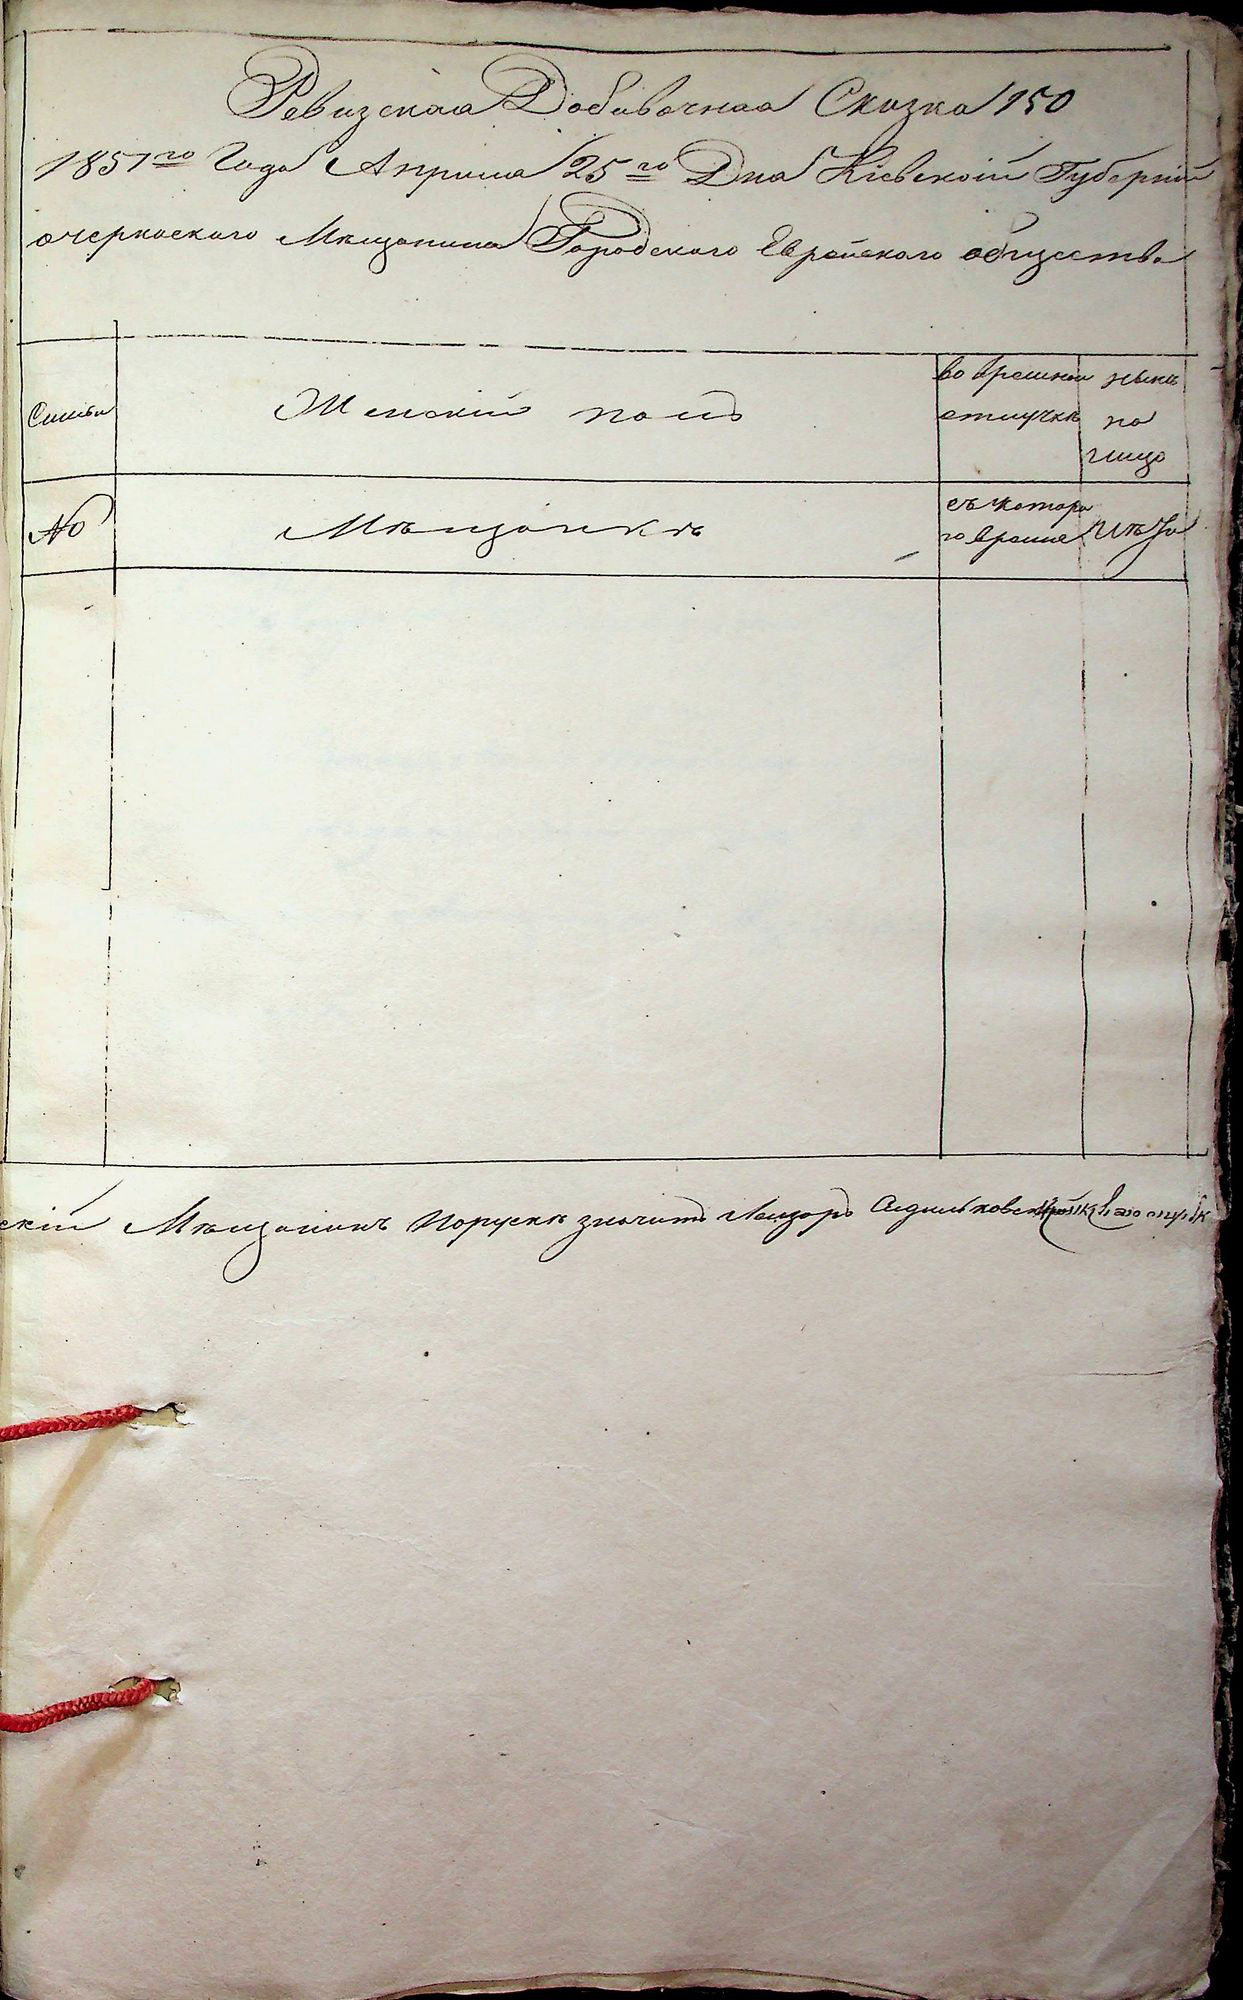 Ревизская Добавочная Сказка 150
1851го Года Апреля 25го Дня Кіевской Губерніи
очеркаского Мещанина Городского Еврейского общества
Семьи
Женскій полъ
во временной отлучкѣ
нынѣ на лицо
№
Мѣщанкѣ
съ которого время
лѣта
скій Мѣщанинъ Порускѣ значитъ Лейзоръ